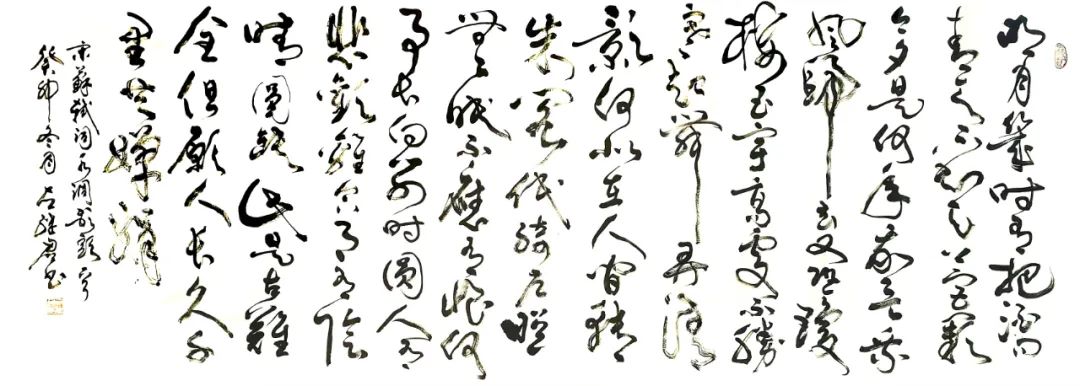 明月幾時有把酒問
青天不知天上宮闕
今夕是何年我欲乘
風歸去又恐瓊
樓玉宇高處不勝
寒起舞弄清
影何似在人間轉
朱閣低綺戶照
無眠不應有恨何
事長向別時圓人有
悲歡離合月有陰
晴圓缺此是古難
全但願人長久千
里共嬋娟
宋蘇軾詞水調歌頭
冬月 書